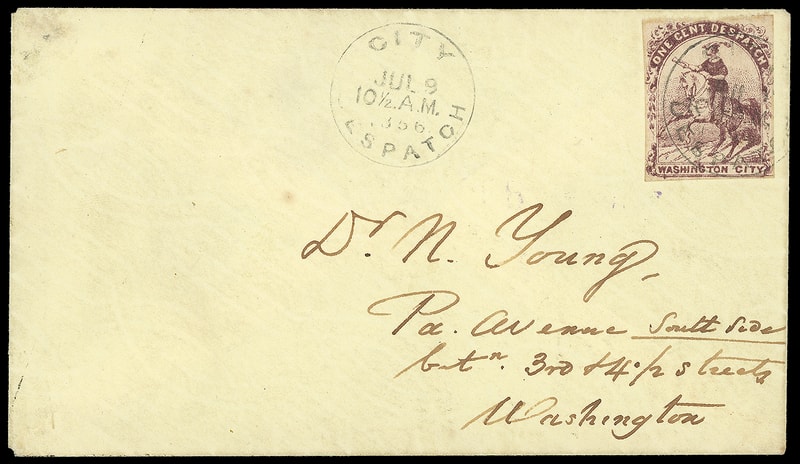 CITY
JUL 9
10½ A.M.
1856
DESPATCH
ONE CENT DESPATCH
WASHINGTON CITY
Dr. N. Young,
Pa. Avenue South side
betn. 3rd & 4½ streets
Washington